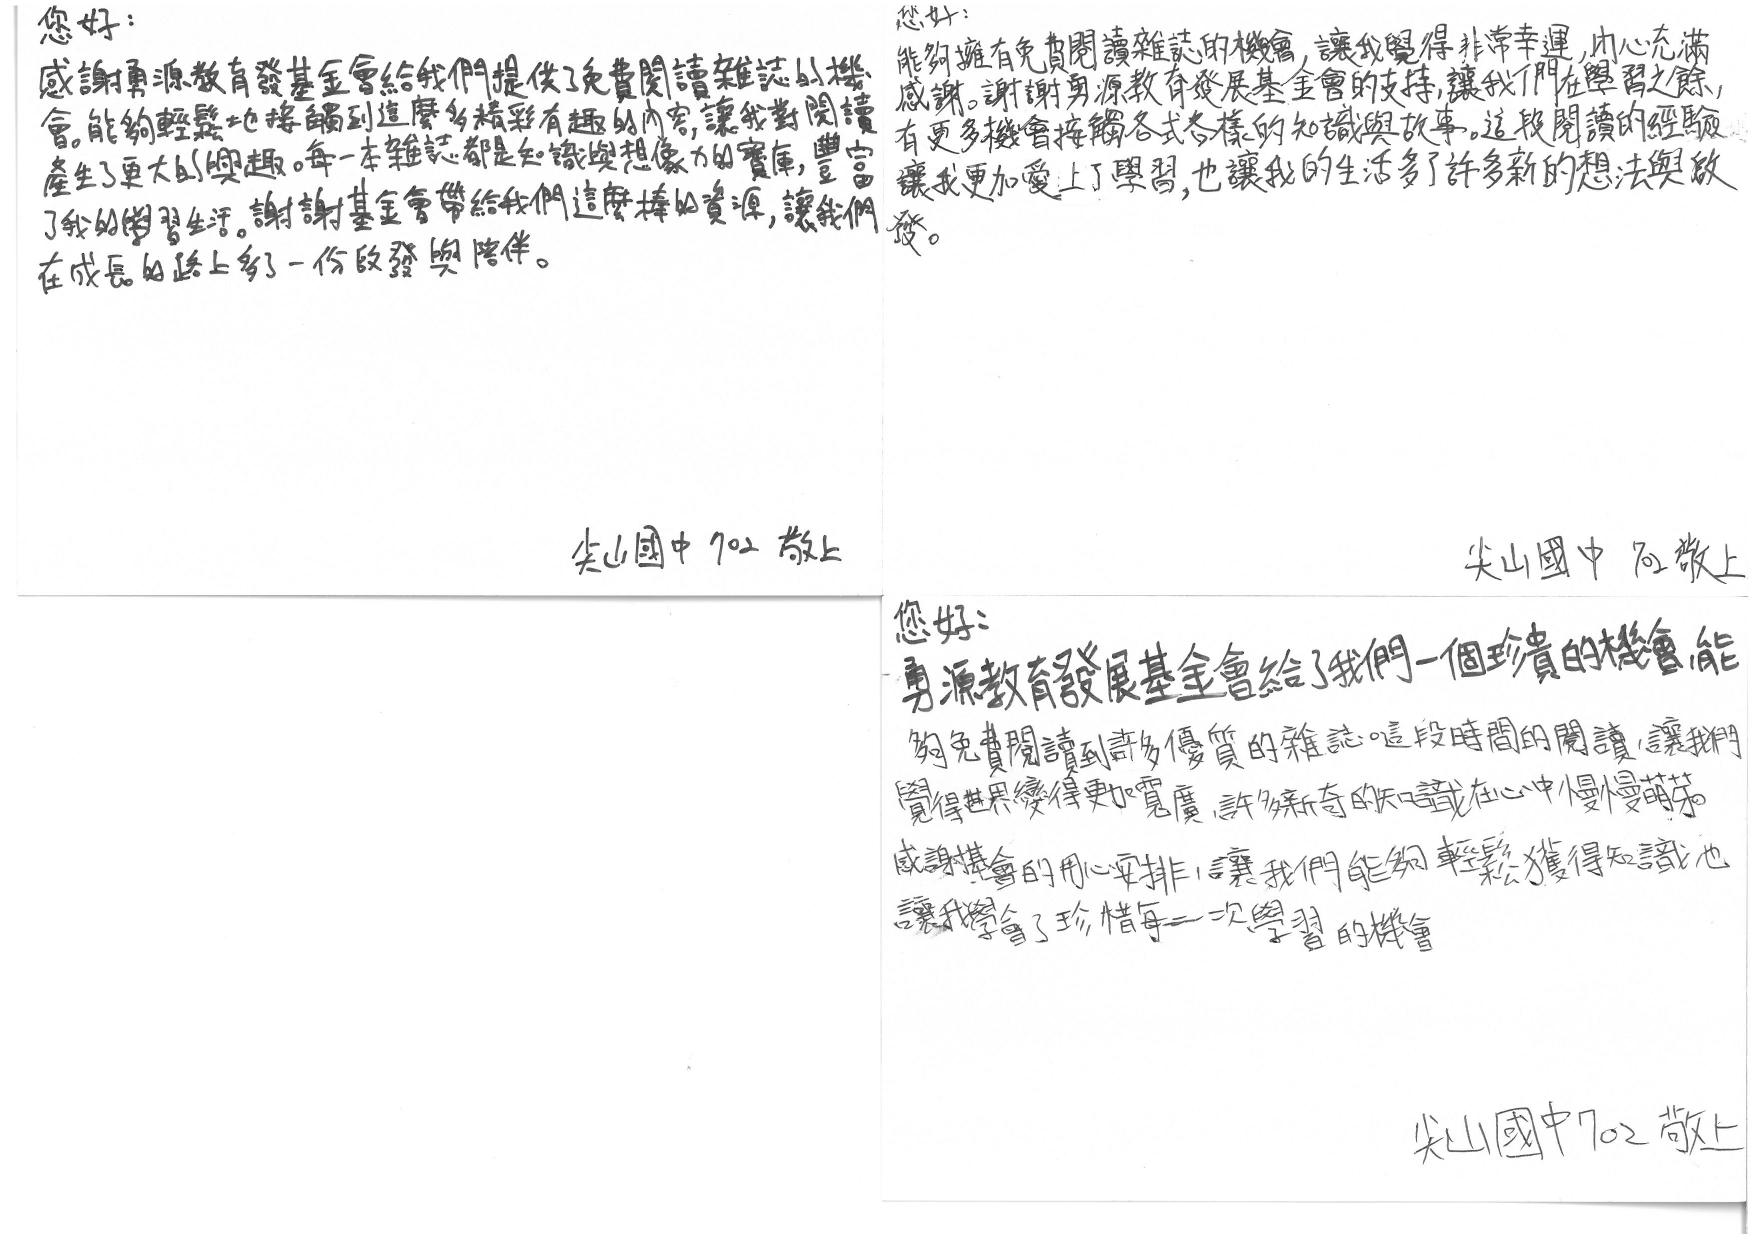 您好：
感謝勇源教育發基金會給我們提供了免費閱讀雜誌的機
會。能夠輕鬆地接觸到這麼多精彩有趣的內容，讓我對閱讀
產生了更大的興趣。每一本雜誌都是知識與想像力的寶庫，豐富
了我的學習生活。謝謝基金會帶給我們這麼棒的資源，讓我們
在成長的路上多了一份啟發與陪伴。
尖山國中 702 敬上
您好：
能夠擁有免費閱讀雜誌的機會，讓我覺得非常幸運，內心充滿
感謝。謝謝勇源教育發展基金會的支持，讓我們在學習之餘，
有更多機會接觸各式各樣的知識與故事。這段閱讀的經驗
讓我更加愛上了學習，也讓我的生活多了許多新的想法與啟
發。
尖山國中 702 敬上
您好：
勇源教育發展基金會給了我們一個珍貴的機會，能
夠免費閱讀到許多優質的雜誌。這段時間的閱讀，讓我們
覺得世界變得更加寬廣，許多新奇的知識在心中慢慢萌芽。
感謝基會的用心安排，讓我們能夠輕鬆獲得知識也
讓我學會了珍惜每一次學習的機會
尖山國中702 敬上